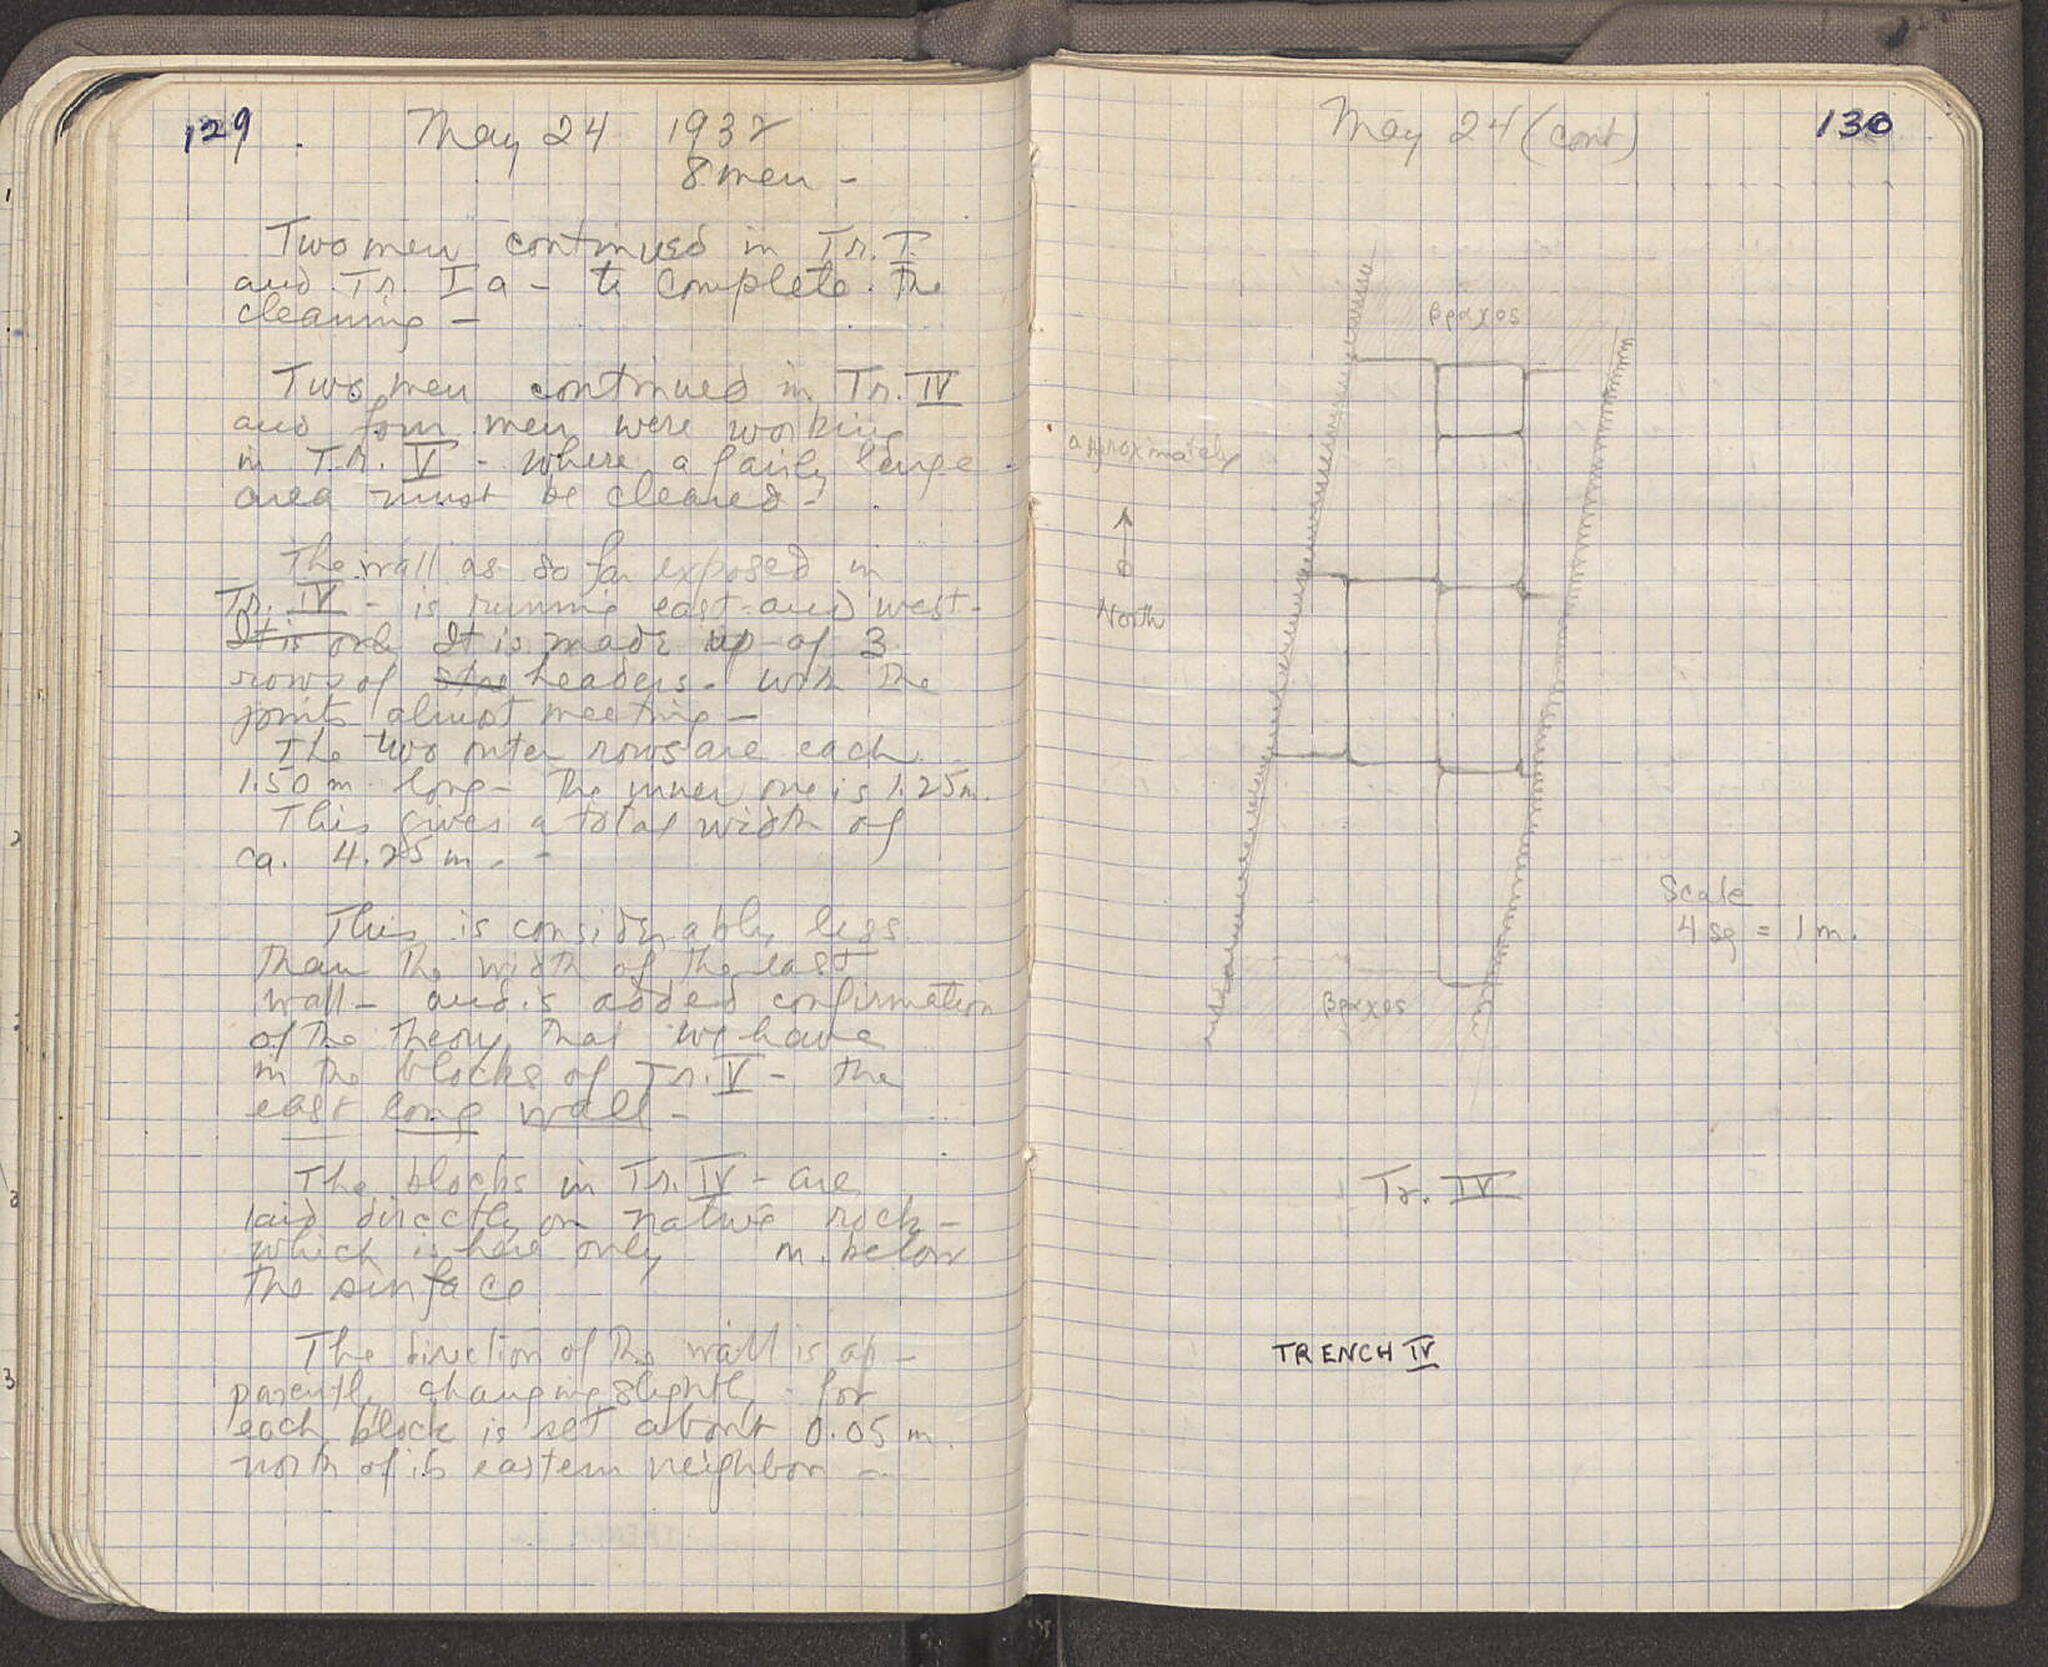 129
May 24 1932
8 men -
Two men continued in Tr. I
and Tr. I a - to complete the
cleaning -
Two men continued in Tr. IV
and four men were working
in Tr. V - where a fairly large
area must be cleared -
The wall as so far exposed in
Tr. IV - is running east and west -
It is only It is made up of 3
rows of headers - with the
joints almost meeting -
The two outer rows are each
1.50 m long - The inner one is 1.25 m.
This gives a total width of
ca. 4.25 m. -
This is considerably less
than the width of the east
wall - and is added confirmation
of the theory that we have
in the blocks of Tr. V - the
east long wall -
The blocks in Tr. IV - are
laid directly on native rock -
which is here only m. below
the surface
The direction of the wall is ap-
parently changing slightly - for
each block is set about 0.05 m.
north of its eastern neighbor -
May 24 (cont)
130
βραχος
approximately
North
Scale
4 sq = 1 m.
βραχος
Tr. IV
TRENCH IV